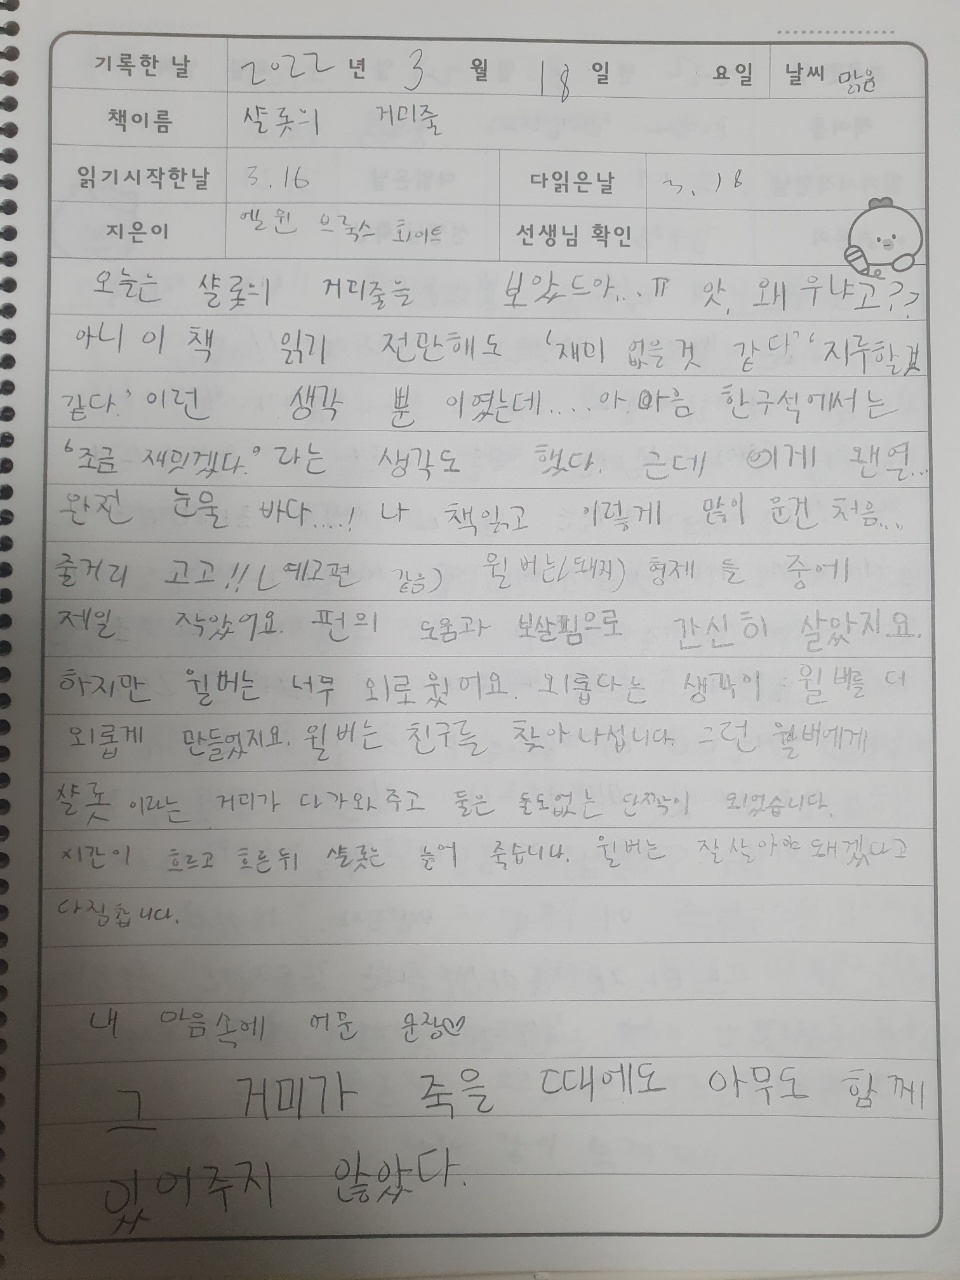 기록한 날 2022 년 3 월 18 일 요일 날씨 맑음
책이름 샬롯의 거미줄
읽기시작한날 3.16 다읽은날 3.18
지은이 엘윈 브룩스 화이트 선생님 확인
오늘은 샬롯의 거미줄을 보았드아...ㅠ 앗, 왜 우냐고??
아니 이 책 읽기 전만해도 '재미 없을것 같다.' '지루할것
같다.' 이런 생각 뿐 이였는데.... 아. 마음 한구석에서는
'조금 재밌겠다.' 라는 생각도 했다. 근데 이게 왠열...
완전 눈물 바다....! 나 책읽고 이렇게 많이 운건 처음...
줄거리 고고!! (예고편 같음) 윌버는(돼지) 형제 들 중에
제일 작았어요. 펀의 도움과 보살핌으로 간신히 살았지요.
하지만 윌버는 너무 외로웠어요. 외롭다는 생각이 윌버를 더
외롭게 만들었지요. 윌버는 친구를 찾아나섭니다. 그런 윌버에게
샬롯 이라는 거미가 다가와 주고 둘은 둘도없는 단짝이 되었습니다.
시간이 흐르고 흐른뒤 샬롯는 늙어 죽습니다. 윌버는 잘살아야 돼겠다고
다짐합니다.
내 마음속에 머문 문장♡
그 거미가 죽을 때에도 아무도 함께
있어주지 않았다.